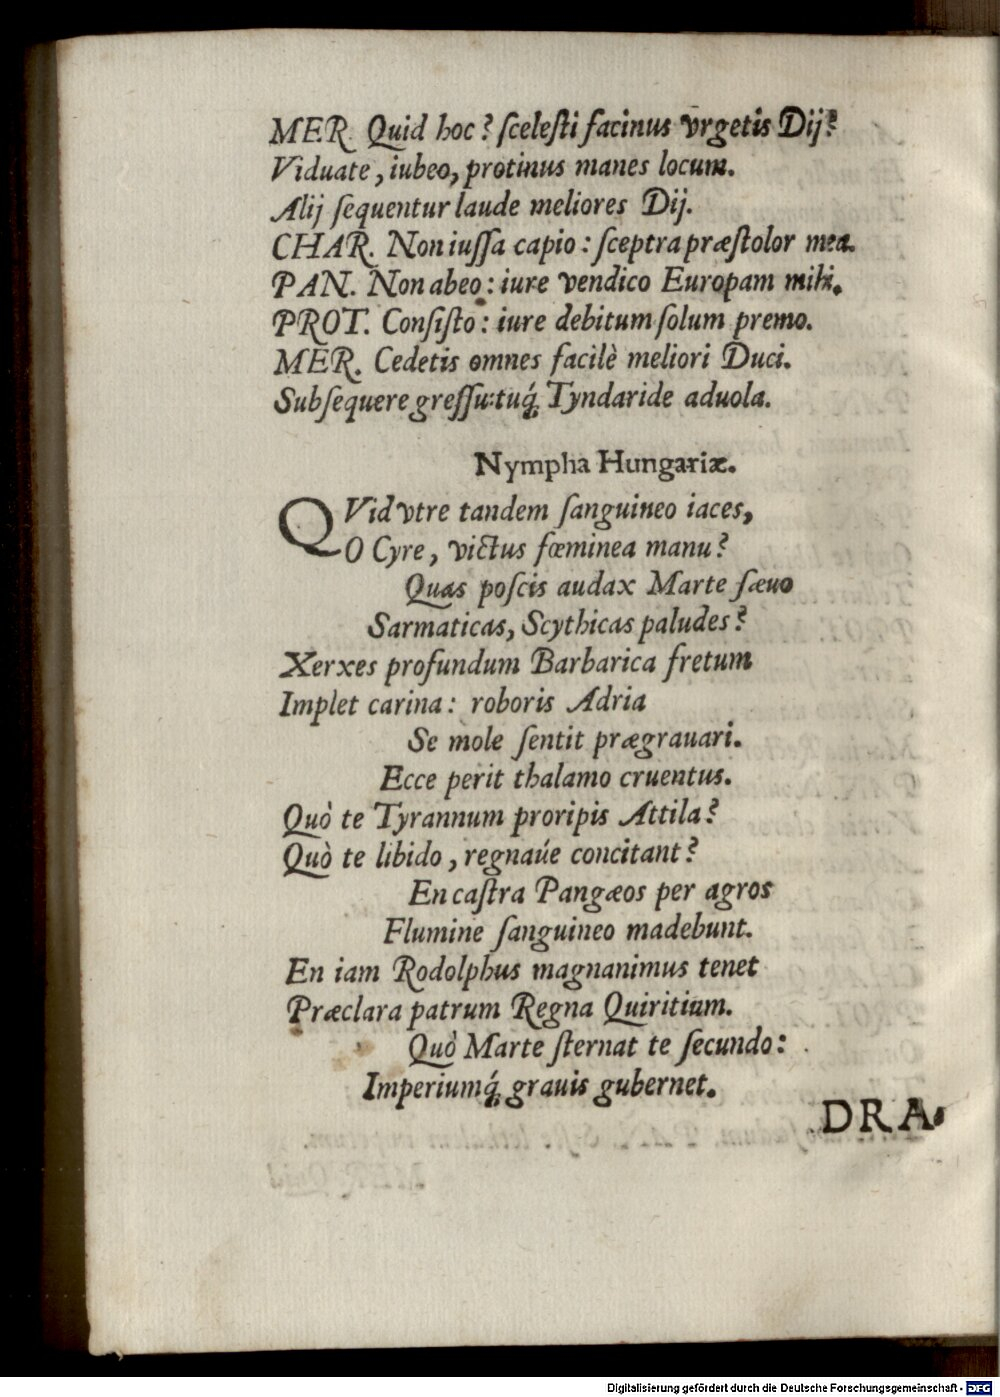 MER. Quid hoc? ſceleſti facinus vrgetis Dij?
Viduate, iubeo, protinus manes locum.
Alij ſequentur laude meliores Dij.
CHAR. Non iuſſa capio: ſceptra præſtolor mea.
PAN. Non abeo: iure vendico Europam mihi.
PROT. Conſiſto: iure debitum ſolum premo.
MER. Cedetis omnes facilè meliori Duci.
Subſequere greſſu: tuq́; Tyndaride aduola.
Nympha Hungariæ.
QVid vtre tandem ſanguineo iaces,
O Cyre, victus fœminea manu?
Quas poſcis audax Marte ſæuo
Sarmaticas, Scythicas paludes?
Xerxes profundum Barbarica fretum
Implet carina: roboris Adria
Se mole ſentit prægrauari.
Ecce perit thalamo cruentus.
Quò te Tyrannum proripis Attila?
Quò te libido, regnaúe concitant?
En caſtra Pangæos per agros
Flumine ſanguineo madebunt.
En iam Rodolphus magnanimus tenet
Præclara patrum Regna Quiritium.
Quò Marte ſternat te ſecundo:
Imperiumq́; grauis gubernet.
DRA-
Digitalisierung gefördert durch die Deutsche Forschungsgemeinschaft - DFG